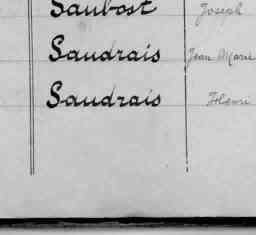 Saubost Joseph
Saudrais Jean Marie
Saudrais Henri